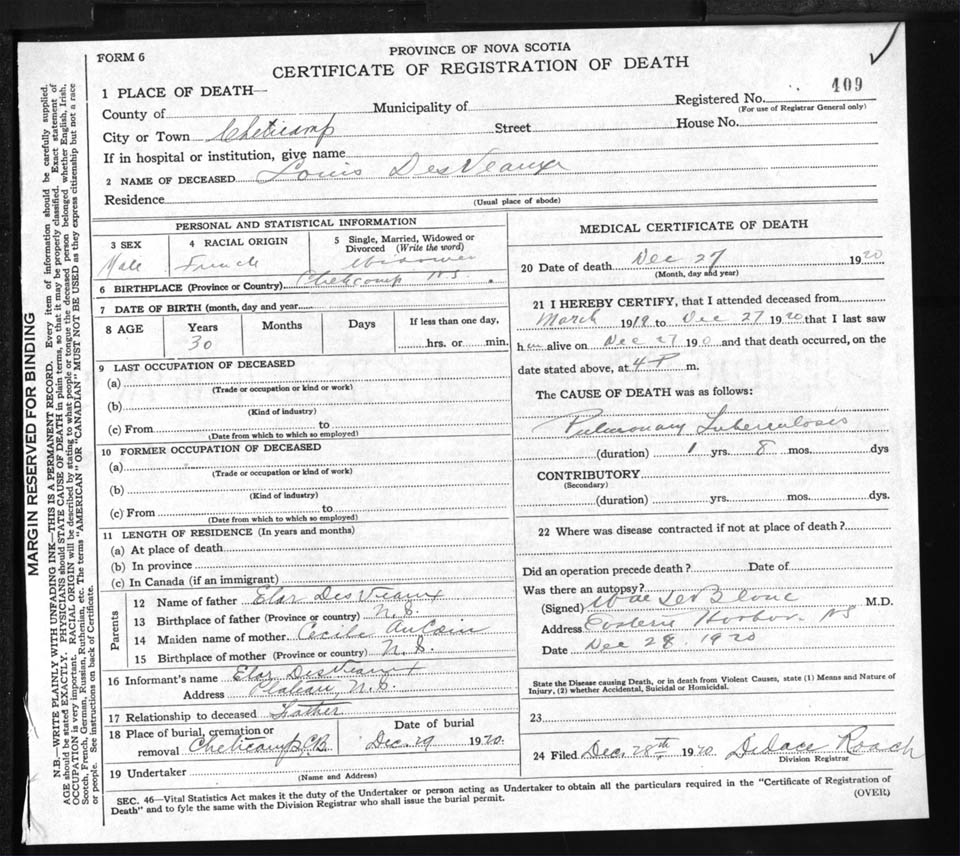 FORM 6
PROVINCE OF NOVA SCOTIA
CERTIFICATE OF REGISTRATION OF DEATH
1 PLACE OF DEATH—
Registered No. 409
(For use of Registrar General only)
County of Municipality of
City or Town Cheticamp Street House No.
If in hospital or institution, give name
2 NAME OF DECEASED Louis DesVeaux
Residence
(Usual place of abode)
PERSONAL AND STATISTICAL INFORMATION
3 SEX 4 RACIAL ORIGIN 5 Single, Married, Widowed or Divorced (Write the word)
Male French Widower
6 BIRTHPLACE (Province or Country) Cheticamp N.S.
7 DATE OF BIRTH (month, day and year)
8 AGE Years Months Days If less than one day,
30 hrs. or min.
9 LAST OCCUPATION OF DECEASED
(a)
(Trade or occupation or kind or work)
(b)
(Kind of industry)
(c) From to
(Date from which to which so employed)
10 FORMER OCCUPATION OF DECEASED
(a)
(Trade or occupation or kind of work)
(b)
(Kind of industry)
(c) From to
(Date from which to which so employed)
11 LENGTH OF RESIDENCE (In years and months)
(a) At place of death
(b) In province
(c) In Canada (if an immigrant)
Parents
12 Name of father DesVeaux
13 Birthplace of father (Province or country) N.S.
14 Maiden name of mother Cecile AuCoin
15 Birthplace of mother (Province or country) N.S.
16 Informant's name DesVeaux
Address Plateau, N.S.
17 Relationship to deceased Father
18 Place of burial, cremation or removal Cheticamp C.B.
Date of burial
Dec. 29 1920.
19 Undertaker
(Name and Address)
MEDICAL CERTIFICATE OF DEATH
20 Date of death Dec 27 1920
(Month, day and year)
21 I HEREBY CERTIFY, that I attended deceased from
March 1919 to Dec 27 1920 that I last saw
him alive on Dec 27 190 and that death occurred, on the
date stated above, at 4 P m.
The CAUSE OF DEATH was as follows:
Pulmonary Tuberculosis
(duration) 1 yrs. 8 mos. dys
CONTRIBUTORY
(Secondary)
(duration) yrs. mos. dys.
22 Where was disease contracted if not at place of death?
Did an operation precede death? Date of
Was there an autopsy?
(Signed) LeBlanc M.D.
Address Harbor NS
Date Dec 28, 1920
State the Disease causing Death, or in death from Violent Causes, state (1) Means and Nature of
Injury, (2) whether Accidental, Suicidal or Homicidal.
23
24 Filed Dec. 28th 1920 Didace Roach
Division Registrar
SEC. 46—Vital Statistics Act makes it the duty of the Undertaker or person acting as Undertaker to obtain all the particulars required in the "Certificate of Registration of
Death" and to fyle the same with the Division Registrar who shall issue the burial permit.
(OVER)
MARGIN RESERVED FOR BINDING
N.B.—WRITE PLAINLY WITH UNFADING INK—THIS IS A PERMANENT RECORD. Every item of information should be carefully supplied.
AGE should be stated EXACTLY. PHYSICIANS should STATE CAUSE OF DEATH in plain terms, so that it may be properly classified. Exact statement of
OCCUPATION is very important. RACIAL ORIGIN will be described by stating to what people or tongue the deceased person belonged whether English, Irish,
Scotch, French, German, Russian, Ruthenian, etc. The terms "AMERICAN" OR "CANADIAN" MUST NOT BE USED as they express citizenship but not a race
or people. See instructions on back of Certificate.